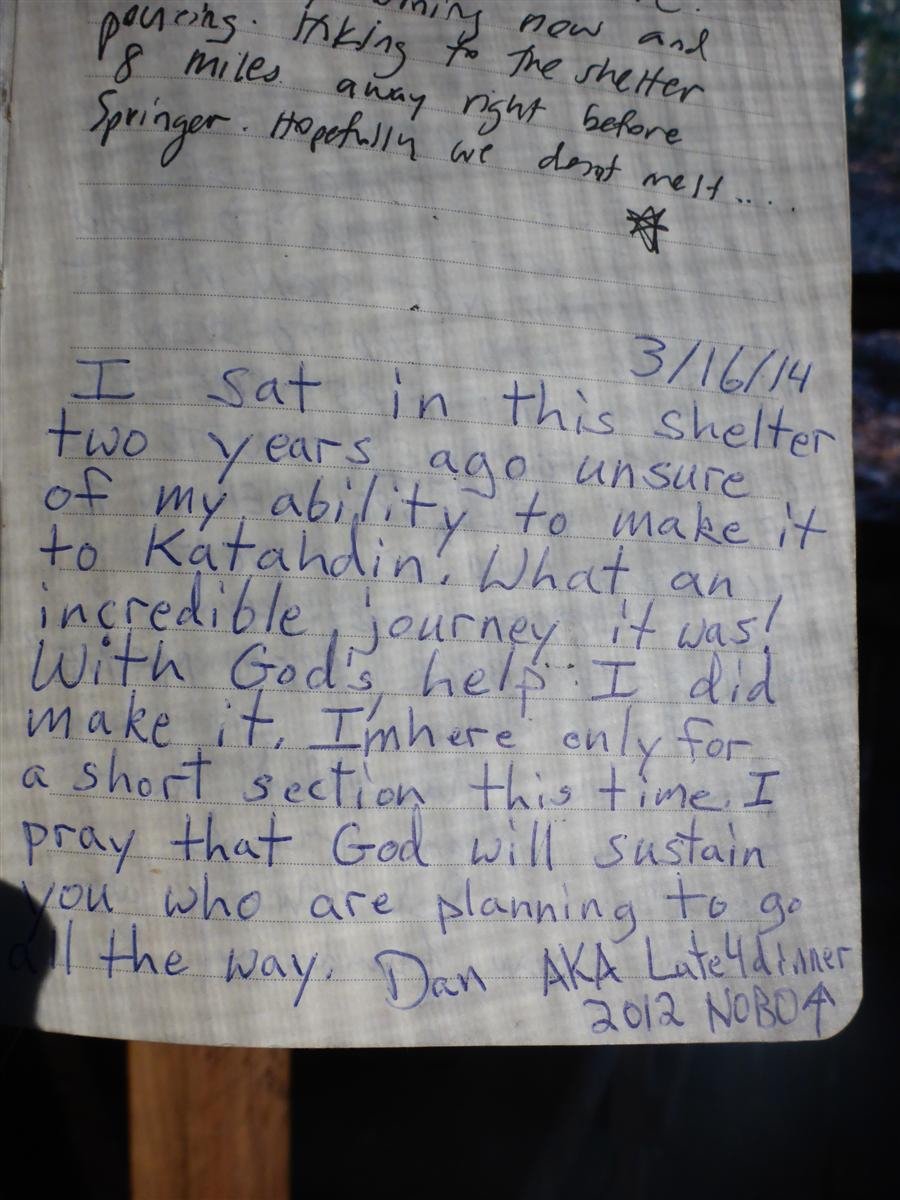 now and
pouring. Hiking to the shelter
8 miles away right before
Springer. Hopefully we dont melt....
3/16/14
I sat in this shelter
two years ago unsure
of my ability to make it
to Katahdin. What an
incredible journey it was!
With God's help I did
make it. I'm here only for
a short section this time. I
pray that God will sustain
you who are planning to go
all the way. Dan AKA Late4dinner
2012 NOBO↑